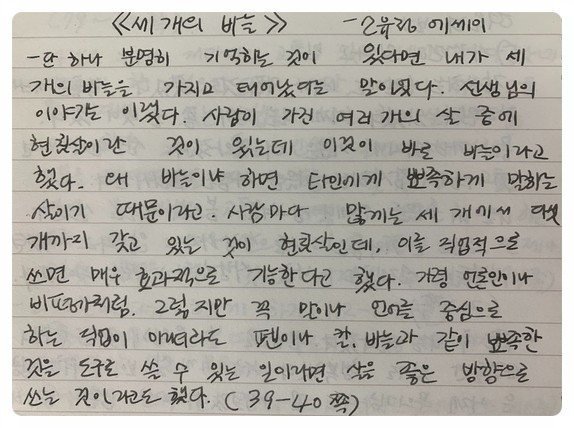 《세 개의 바늘》 - 2유랑 에세이
- 단 하나 분명히 기억하는 것이 있다면 내가 세
개의 바늘을 가지고 태어났다는 말이었다. 선생님의
이야기는 이랬다. 사람이 가진 여러 개의 살 중에
현침살이란 것이 있는데 이것이 바로 바늘이라고
했다. 왜 바늘이냐 하면 타인에게 뾰족하게 박히는
살이기 때문이라고. 사람마다 많게는 세 개에서 다섯
개까지 갖고 있는 것이 현침살인데, 이를 직업적으로
쓰면 매우 효과적으로 기능한다고 했다. 가령 언론인이나
비평가처럼. 그렇지만 꼭 말이나 언어를 중심으로
하는 직업이 아니더라도 펜이나 칼, 바늘과 같이 뾰족한
것을 도구로 쓸 수 있는 일이라면 살을 좋은 방향으로
쓰는 것이라고도 했다. (39-40쪽)